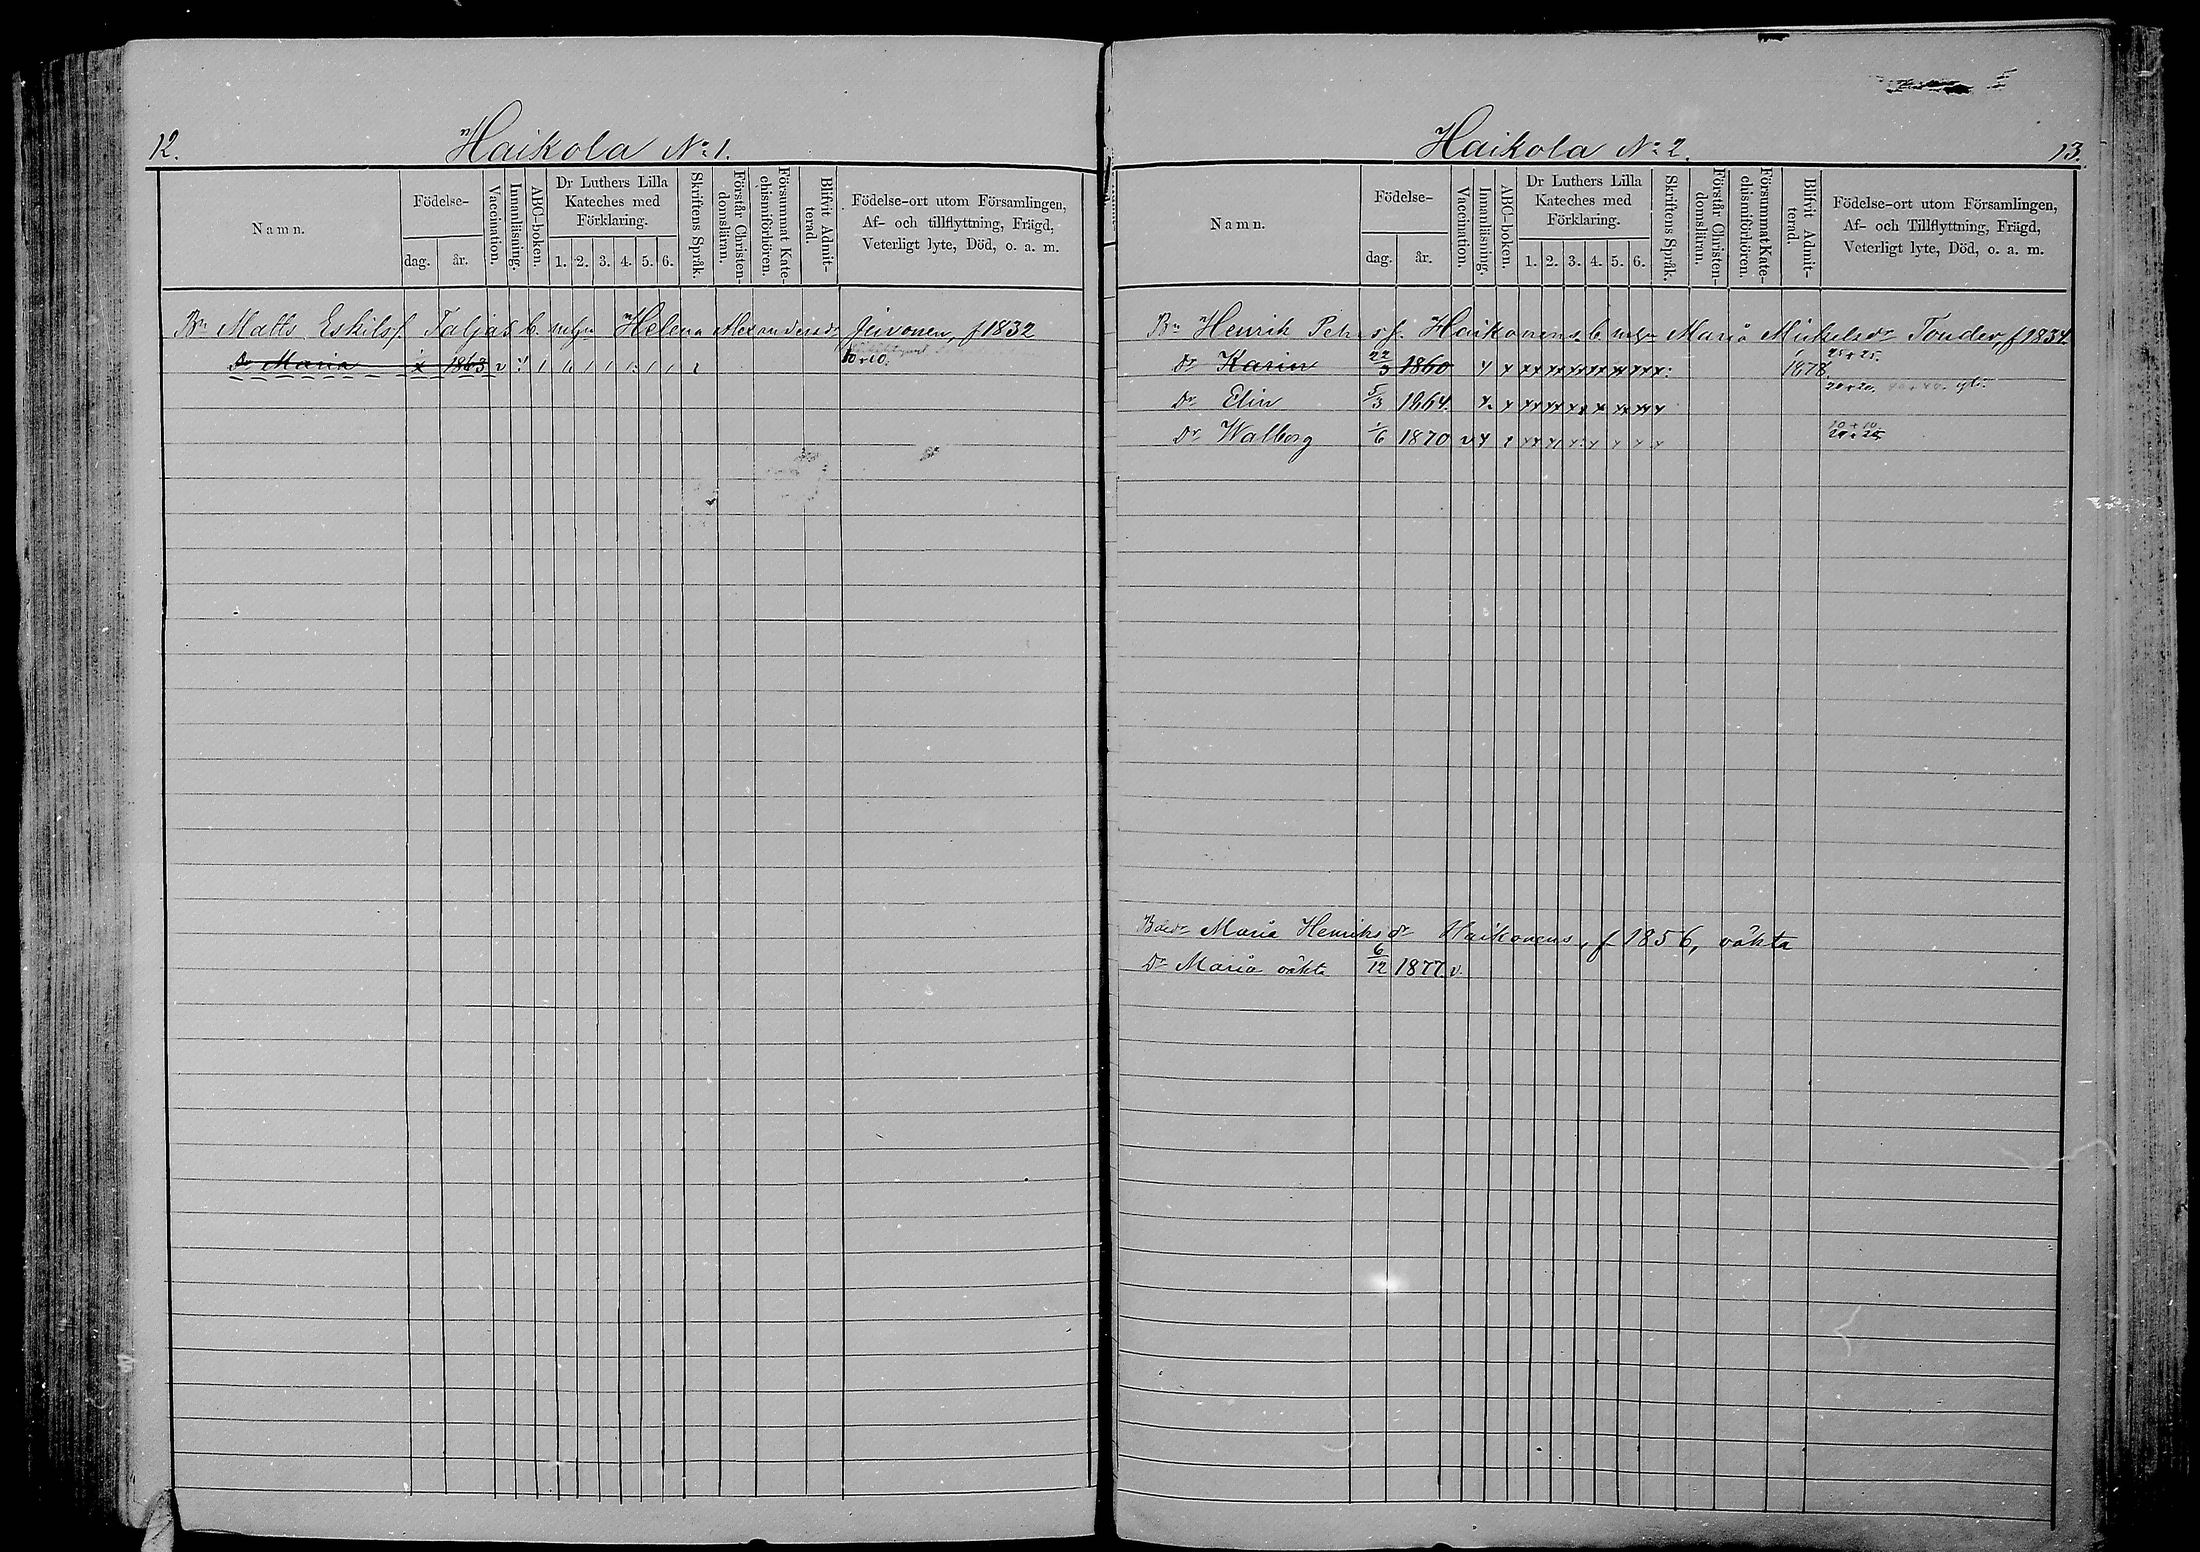 12.
Haikola No 1.
Namn.
Födelse-
dag.
år.
Vaccination.
Innanläsning.
ABC-boken.
Dr Luthers Lilla
Kateches med
Förklaring.
1. 2. 3. 4. 5. 6.
Skriftens Språk.
Förstår Christen-
domsläran.
Försummat Kate-
chismiförhören.
Blifvit Admit-
terad.
Födelse-ort utom Församlingen,
Af- och tillflyttning, Frägd,
Veterligt lyte, Död, o. a. m.
Bn Matts Eskilsf. Taljas b. m hn Helena Alexandersdr f 1832
Dr Maria 1863
10+10.
Haikola No 2.
13.
Namn.
Födelse-
dag.
år.
Vaccination.
Innanläsning.
ABC-boken.
Dr Luthers Lilla
Kateches med
Förklaring.
1. 2. 3. 4. 5. 6.
Skriftens Språk.
Förstår Christen-
domsläran.
Försummat Kate-
chismiförhören.
Blifvit Admit-
terad.
Födelse-ort utom Församlingen,
Af- och Tillflyttning, Frägd,
Veterligt lyte, Död, o. a. m.
Bn Henrik Petersf. Haikonens b. m hn Maria Mickelsdr f 1834
dr Karin 22/3 1860 1878 25+25.
Dr Elin 5/3 1864. 20+20.
Dr Walborg 1/6 1870 10+10
Maria Henriksdr Haikonens, f 1856, oäkta
Dr Maria oäkta 6/12 1877 v.